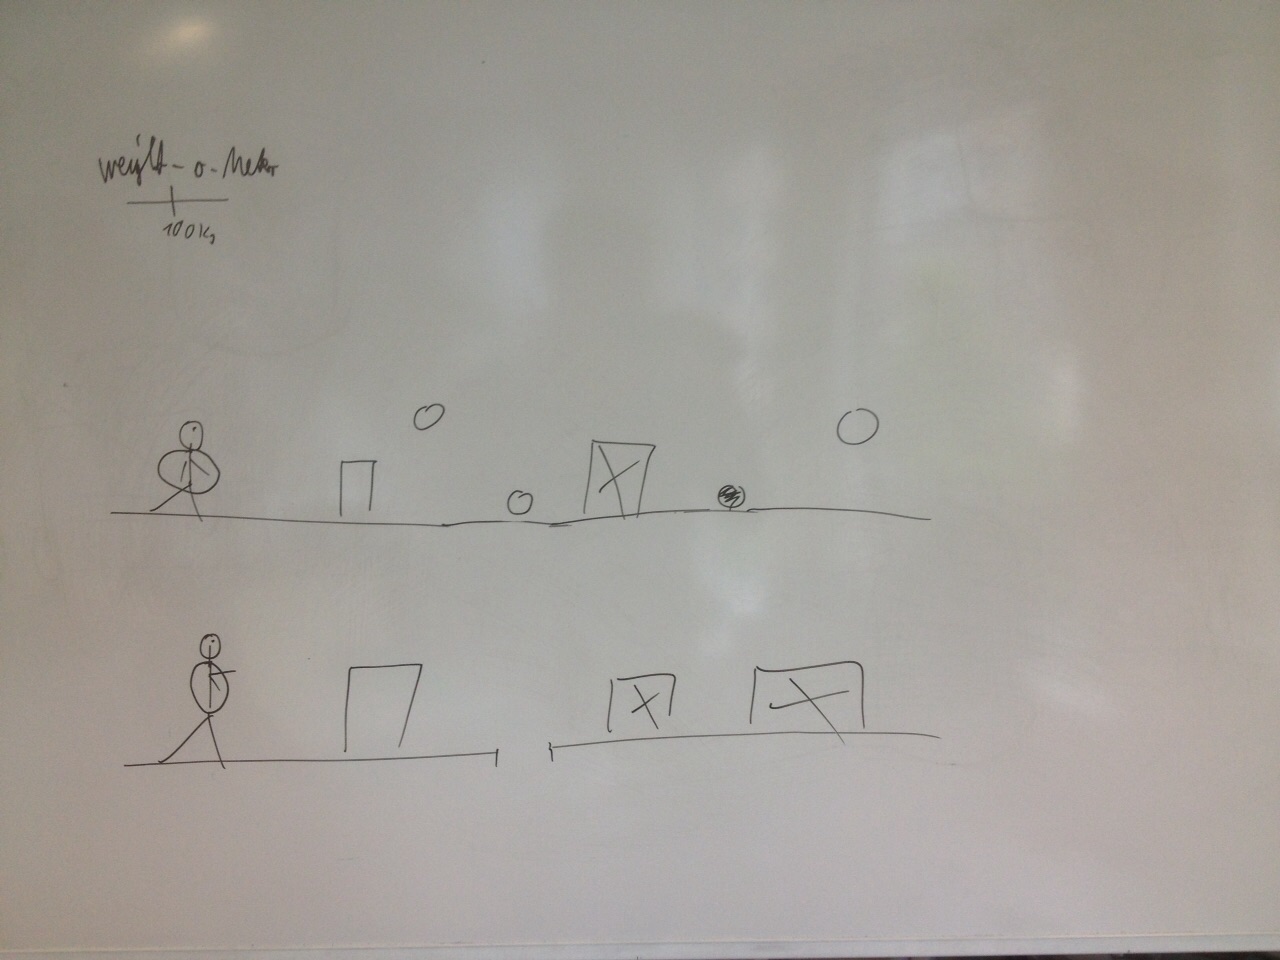 weight-o-Meter
100kg